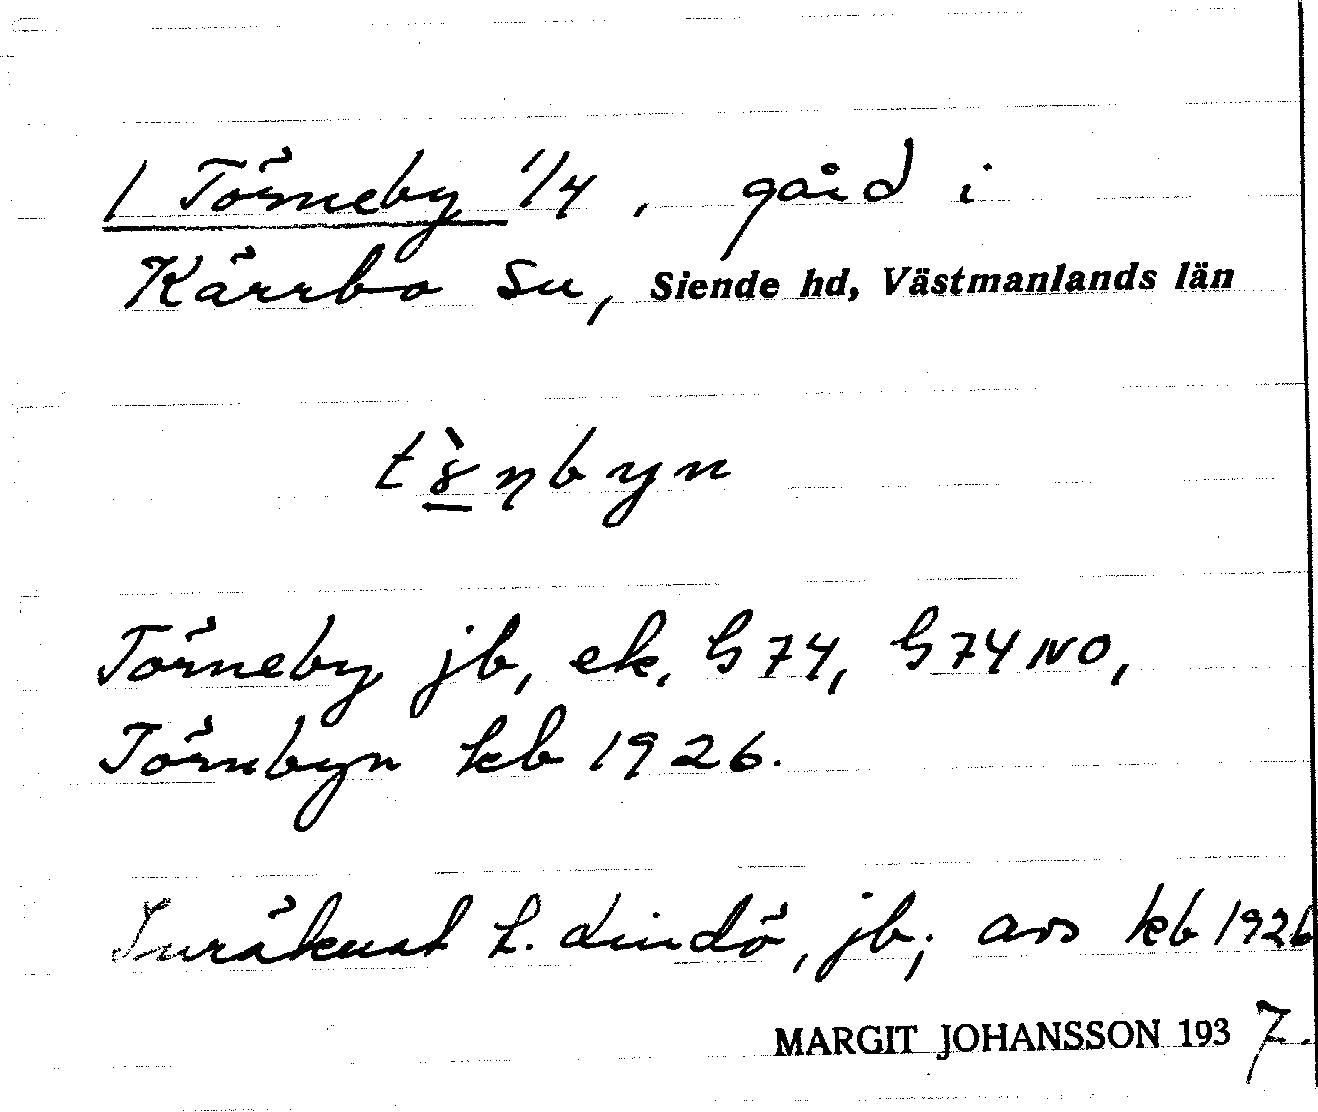 1 Törneby 1/4, gård i
Kärrbo sn, Siende hd, Västmanlands län
Törneby jb, ek, G 74, G 74 NO,
Törnbyn kb 1926.
Inräknat t. Lindö, jb; avs kb 1926
MARGIT JOHANSSON 1937.